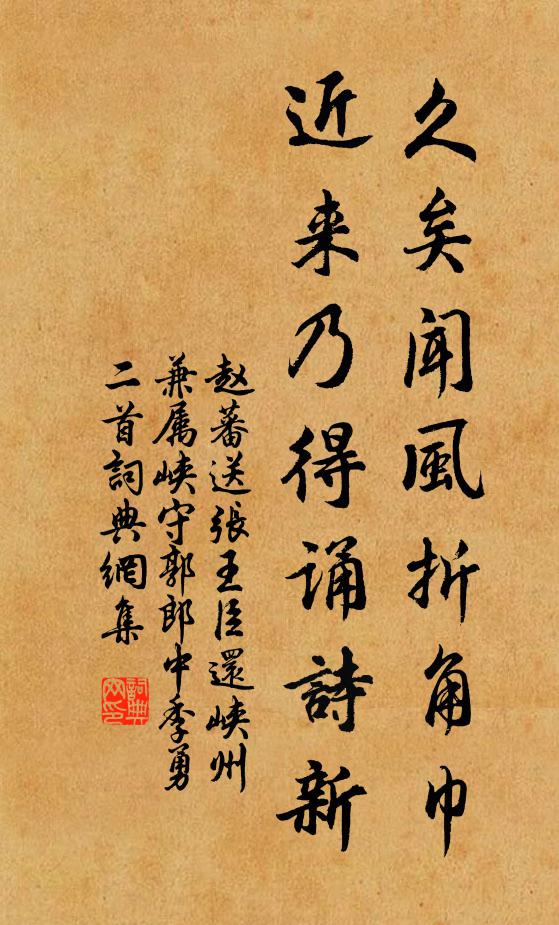 久矣聞風折角巾
近来乃得诵詩新
赵蕃送張王臣還峡州
兼属峡守郭郎中季勇
二首詞典網集
詞典网印